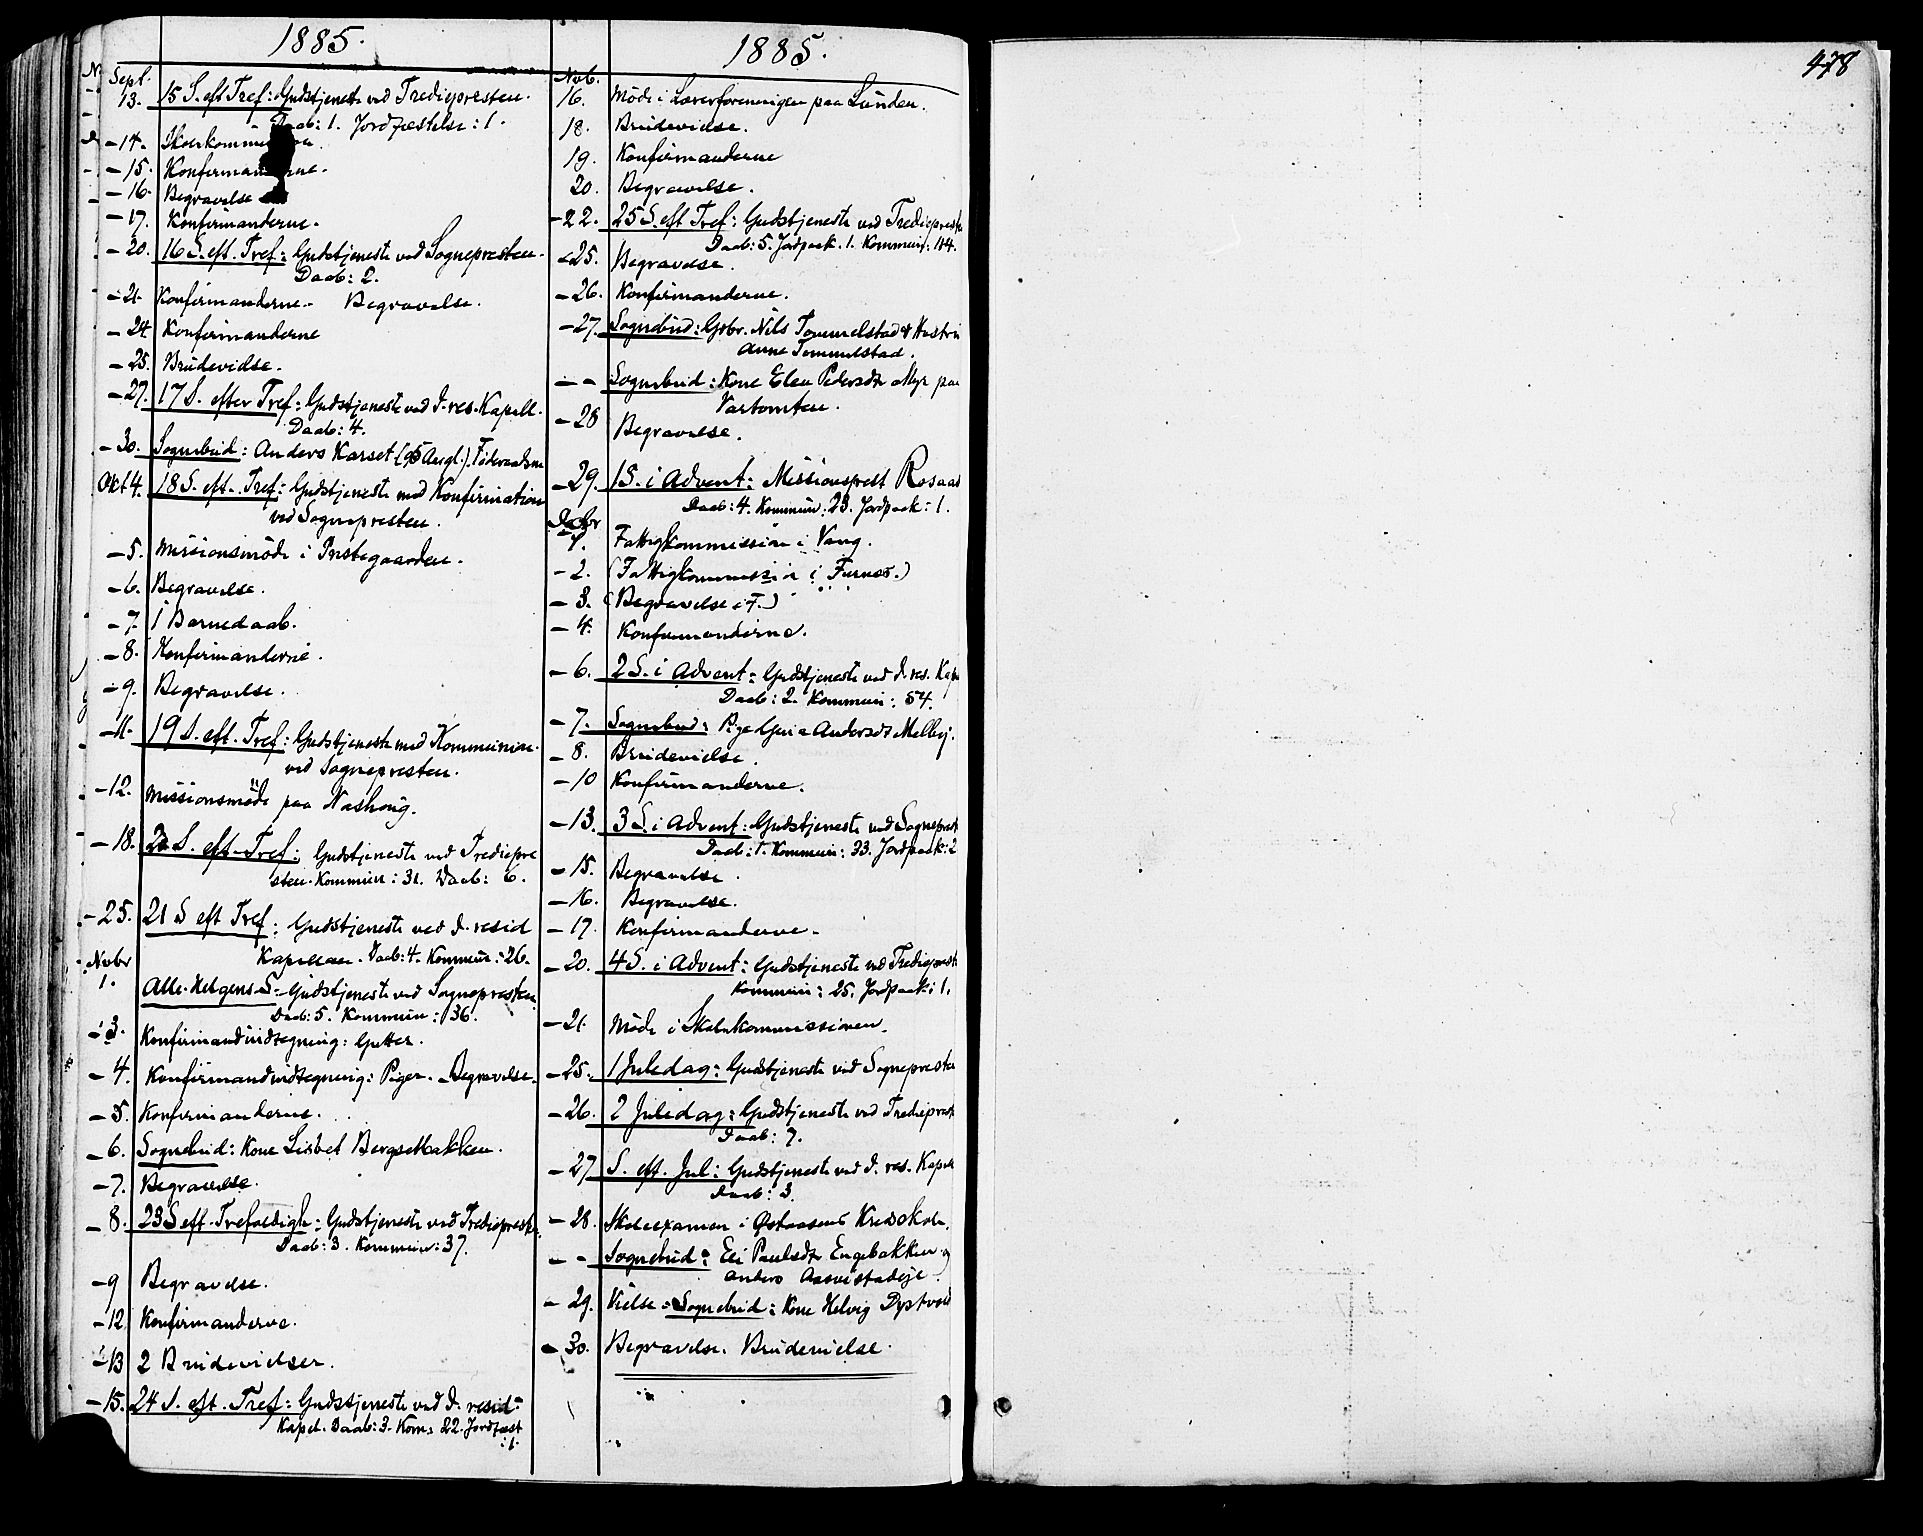 1885.
Sept.
13. 15 S. eft Tref: Gudstjeneste ved Trediepresten.
Daab: 1. Jordfæstelse: 1.
-14. Skolekommissionen.
-15. Konfirmanderne.
-16. Begravelse
-17. Konfirmanderne.
-20. 16 S. eft. Tref: Gudstjeneste ved Sognepresten.
Daab: 2.
-21. Konfirmanderne. Begravelse.
-24. Konfirmanderne
-25. Brudevidse.
-27. 17 S. efter Tref: Gudstjeneste ved d. res. Kapell.
Daab: 4.
-30. Sognebud: Anders Karset
Okt 4. 18 S. eft. Tref: Gudstjeneste med Konfirmation
ved Sognepresten.
-5. Missionsmöde i Prestegaarden.
-6. Begravelse.
-7. 1 Barnedaab.
-8. Konfirmanderne.
-9. Begravelse.
-11. 19 S. eft. Tref: Gudstjeneste med Kommunion
ved Sognepresten.
-12. Missionsmöde paa Nashoug.
-18. 20 S. eft. Tref: Gudstjeneste ved Trediepre
sten. Kommun: 31. Daab: 6.
-25. 21 S eft Tref: Gudstjeneste ved d. resid
Kapellan. Daab: 4. Kommun: 26.
Novbr
1. Alle-Helgens-S. Gudstjeneste ved Sognepresten
Daab: 5. Kommun: 36.
-3. Konfirmandindtegning: Gutter.
-4. Konfirmandindtegning: Piger. Begravelse.
-5. Konfirmanderne.
-6. Sognebud: Kone Lisbet Bergsetbakken.
-7. Begravelse.
-8. 23 S eft. Trefoldigh: Gudstjeneste ved Trediepresten
Daab: 3. Kommun: 37.
-9 Begravelse.
-12 Konfirmanderne.
-13 2 Brudevidser.
-15. 24 S. eft. Tref: Gudstjeneste ved d. resid.
Kapel. Daab: 3. Kom: 22. Jordfæst
: 1.
1885.
Nvb.
16. Möde i Lærerforeningen paa Lunden.
18. Brudevidse.
19. Konfirmanderne
20. Begravelse.
-22. 25 S. eft Tref: Gudstjeneste ved Trediepreste
Daab: 5. Jordpaak. 1. Kommun: 114.
-25. Begravelse.
-26. Konfirmanderne.
-27. Sognebud: Gbr. Nils Tommelstad & Hustru
Anne Tommelstad.
- - Sognebud: Kone Elen Pedersdtr Myr paa
Vartomten.
-28 Begravelse.
-29. 1 S. i Advent: Missionsprest Rosaas
Daab: 4. Kommun: 23. Jordpaak: 1.
Decbr
1. Fattigkommission i Vang.
-2. (Fattigkommission i Furnes.)
-3. (Begravelse i F.)
-4. Konfirmanderne.
-6. 2 S. i Advent: Gudstjeneste ved d. res. Kape
Daab: 2. Kommun: 54.
-7. Sognebud: Pige Andersdt
-8. Brudevidse.
-10 Konfirmanderne.
-13. 3 S. i Advent: Gudstjeneste ved Sogneprest
Daab: 1. Kommun: 33. Jordpaak: 2
-15. Begravelse.
-16. Begravelse.
-17. Konfirmanderne.
-20. 4 S. i Advent: Gudstjeneste ved Tredieprest
Kommun: 25. Jordpaak: 1.
-21. Möde i Skolekommissionen.
-25. 1 Juledag: Gudstjeneste ved Sognepreste
-26. 2 Juledag: Gudstjeneste ved Tredieprest
Daab: 7.
-27 S. eft. Jul: Gudstjeneste ved d. res. Kapel
Daab: 3.
-28. Skoleexamen i Østaasens Kredsskole.
- - Sognebud: Eli Paulsdtr Engebakken og
Anders
-29. Vielse. Sognebud: Kone Helvig Dystvold
-30. Begravelse. Brudevielse.
478